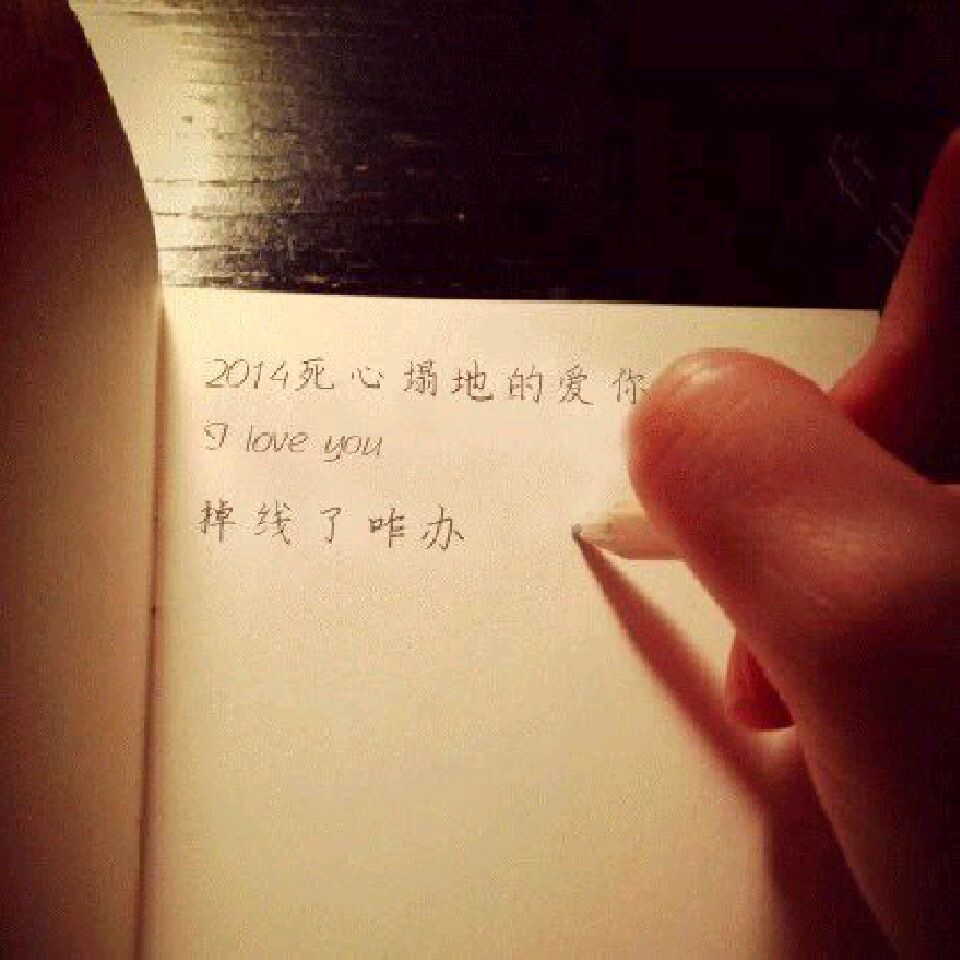 2014死心塌地的爱你
I love you
掉线了咋办